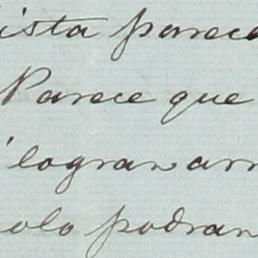 ista parece
Parece que
logran arr
olo podran